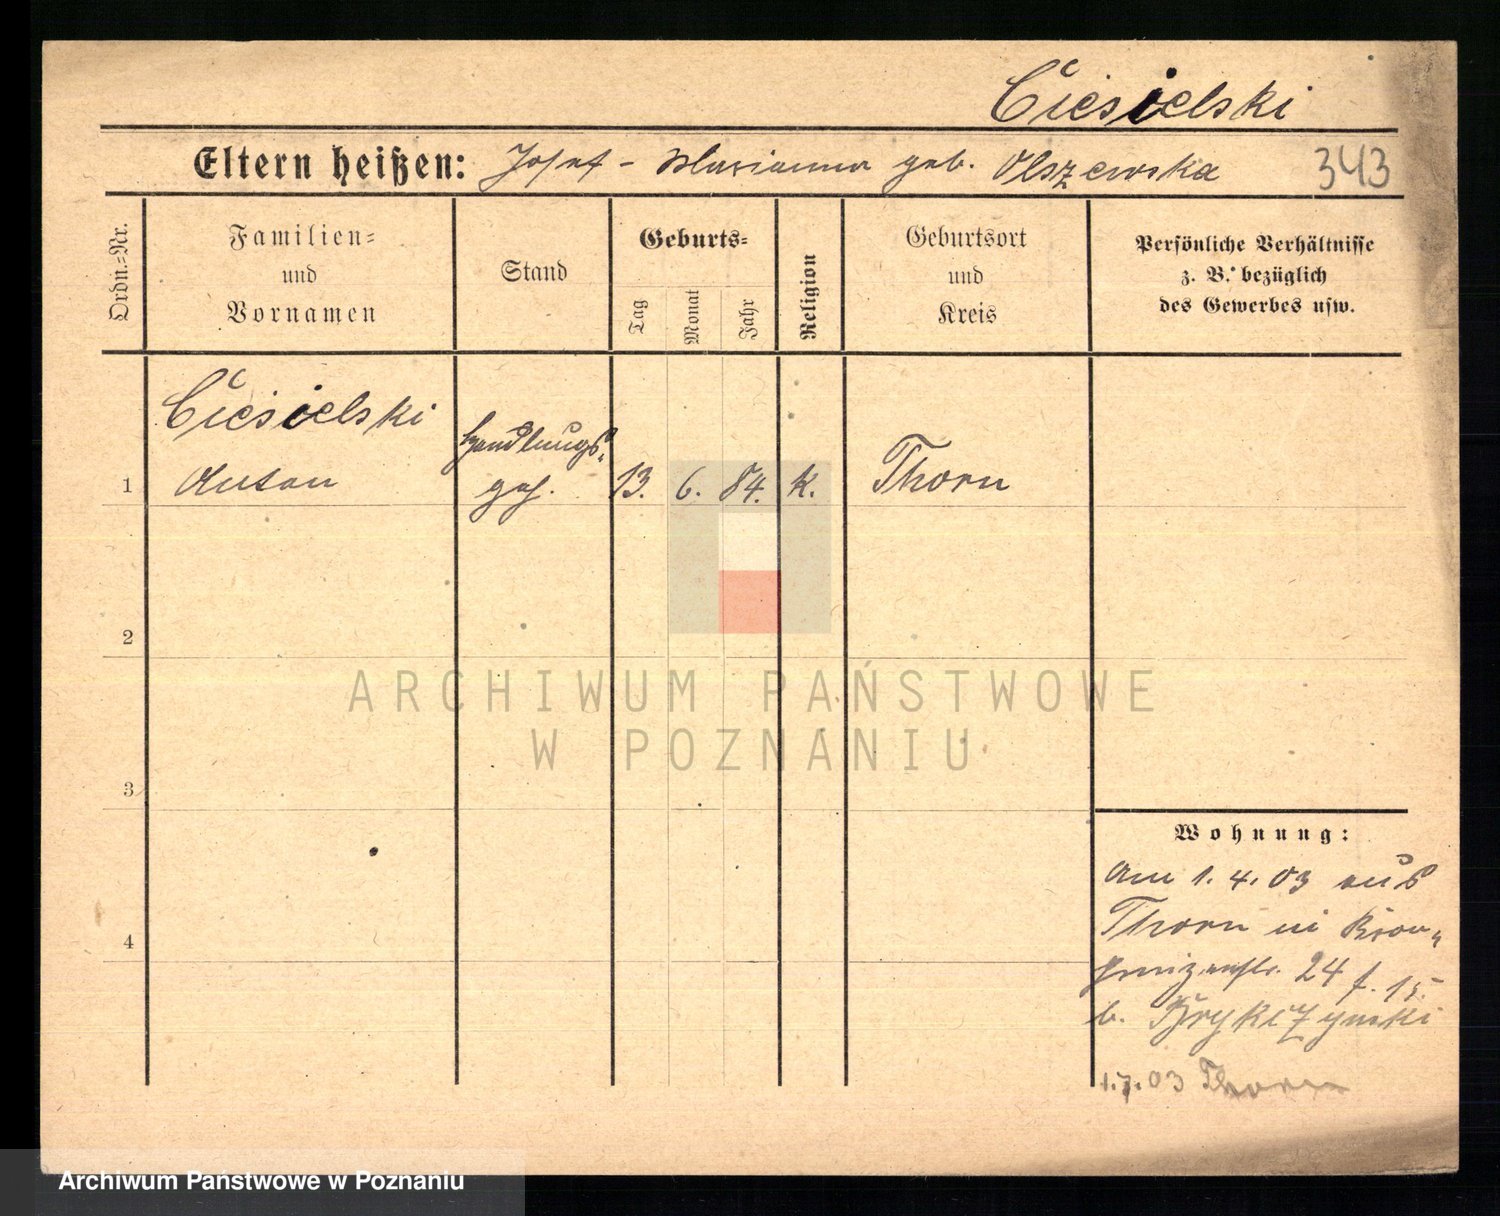 Ciesielski
Eltern heißen: Josef - Marianna geb. Olszewska 343
Ordn.-Nr.
Familien-
und
Vornamen
Stand
Geburts-
Tag
Monat
Jahr
Religion
Geburtsort
und
Kreis
Persönliche Verhältnisse
z. B. bezüglich
des Gewerbes usw.
Ciesielski
Handlungs-
1 Anton geh. 13. 6. 84. k. Thorn
2
3
4
Wohnung:
Am 1. 4. 03 aus
Thorn in Kron-
prinzenstr. 24 f. 15.
b.
1.7.03 Thorn
ARCHIWUM PAŃSTWOWE
W POZNANIU
Archiwum Państwowe w Poznaniu